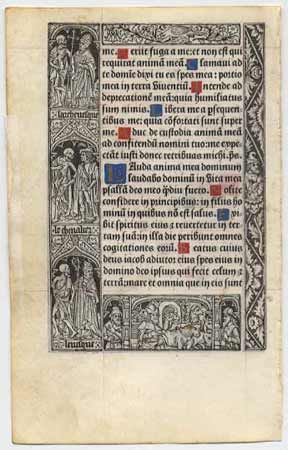 me. Periit fuga a me: et non est qui
requirat animã meã. Clamaui ad
te domĩe dixi tu es spes mea: portio
mea in terra viuentiũ. Intende ad
deprecationẽ meã: quia humiliatus
sum nimis. Libera me a psequenti
bus me: quia cõfortati sunt super
me. Educ de custodia animã meã
ad confitendũ nomini tuo: me expe
ctãt iusti donec retribuas michi. ps.
Lauda anima mea dominum
laudabo dominũ in vita mea
psallã deo meo quãdiu fuero. Nolite
confidere in principibus: in filiis ho
minũ in quibus nõ est salus. Exi
bit spiritus eius et reuertetur in ter
ram suã: in illa die peribunt omnes
cogitationes eorũ. Beatus cuius
deus iacob adiutor eius spes eius in
domino deo ipsius qui fecit celum et
terram: mare et omnia que in eis sunt
larcheuesque
le cheualier
leuesque